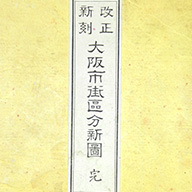 改正
新刻
大阪市街區分新圖 完